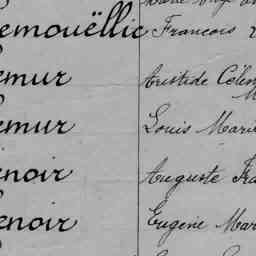 emouëllic François
emur Aristide Célem
emur Louis Marie
enoir Auguste Fra
enoir Eugene Mar